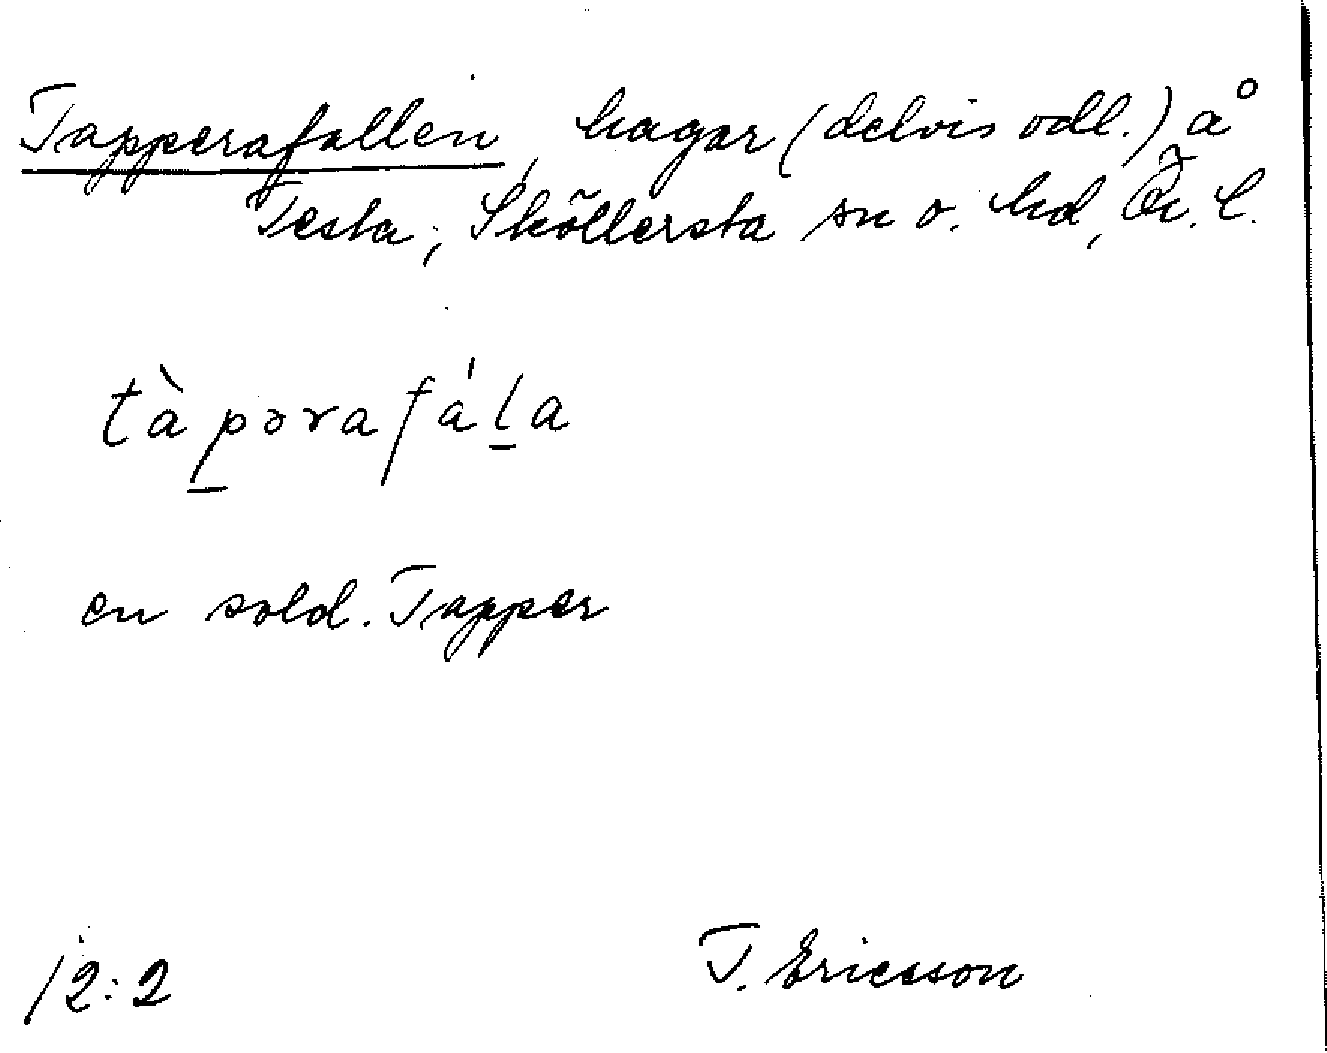 Tapperafallen, hagar (delvis odl.) å
Testa; Sköllersta sn o. hd, Ör. l.
tàp̲ərafál̲a
en sold. Tapper
12:2 T. Ericsson